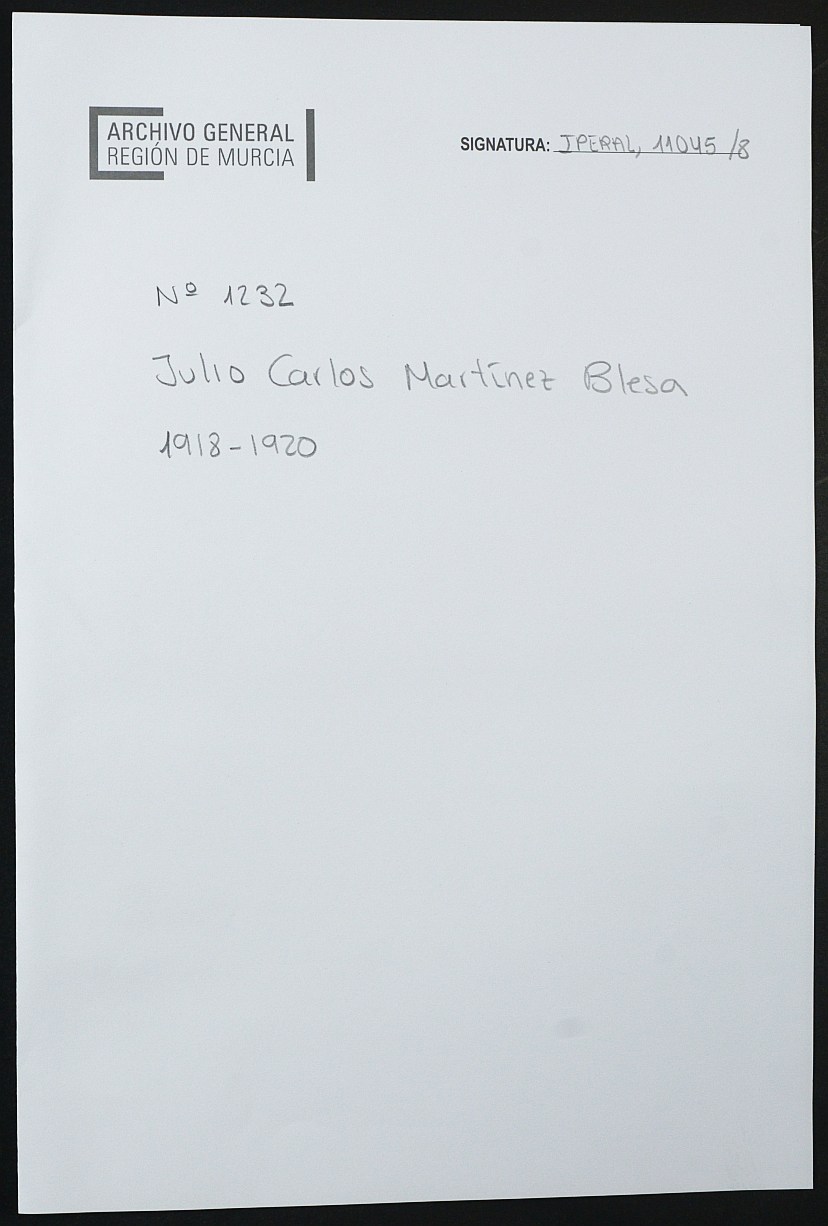 ARCHIVO GENERAL
REGIÓN DE MURCIA
SIGNATURA: IPERAL, 11045 /8
Nº 1232
Julio Carlos Martínez Blesa
1918-1920